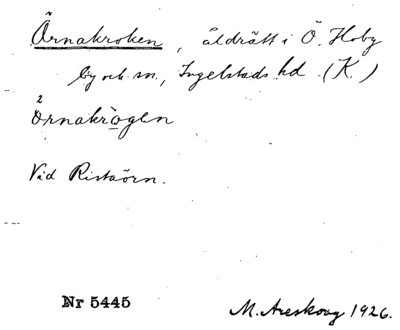 Örnakroken, åldrätt i Ö. Hoby
by och sn., Ingelstads hd. (K)
2
örnakrògen
Vid Ristaörn.
Nr 5445
M. Areskoug 1926.